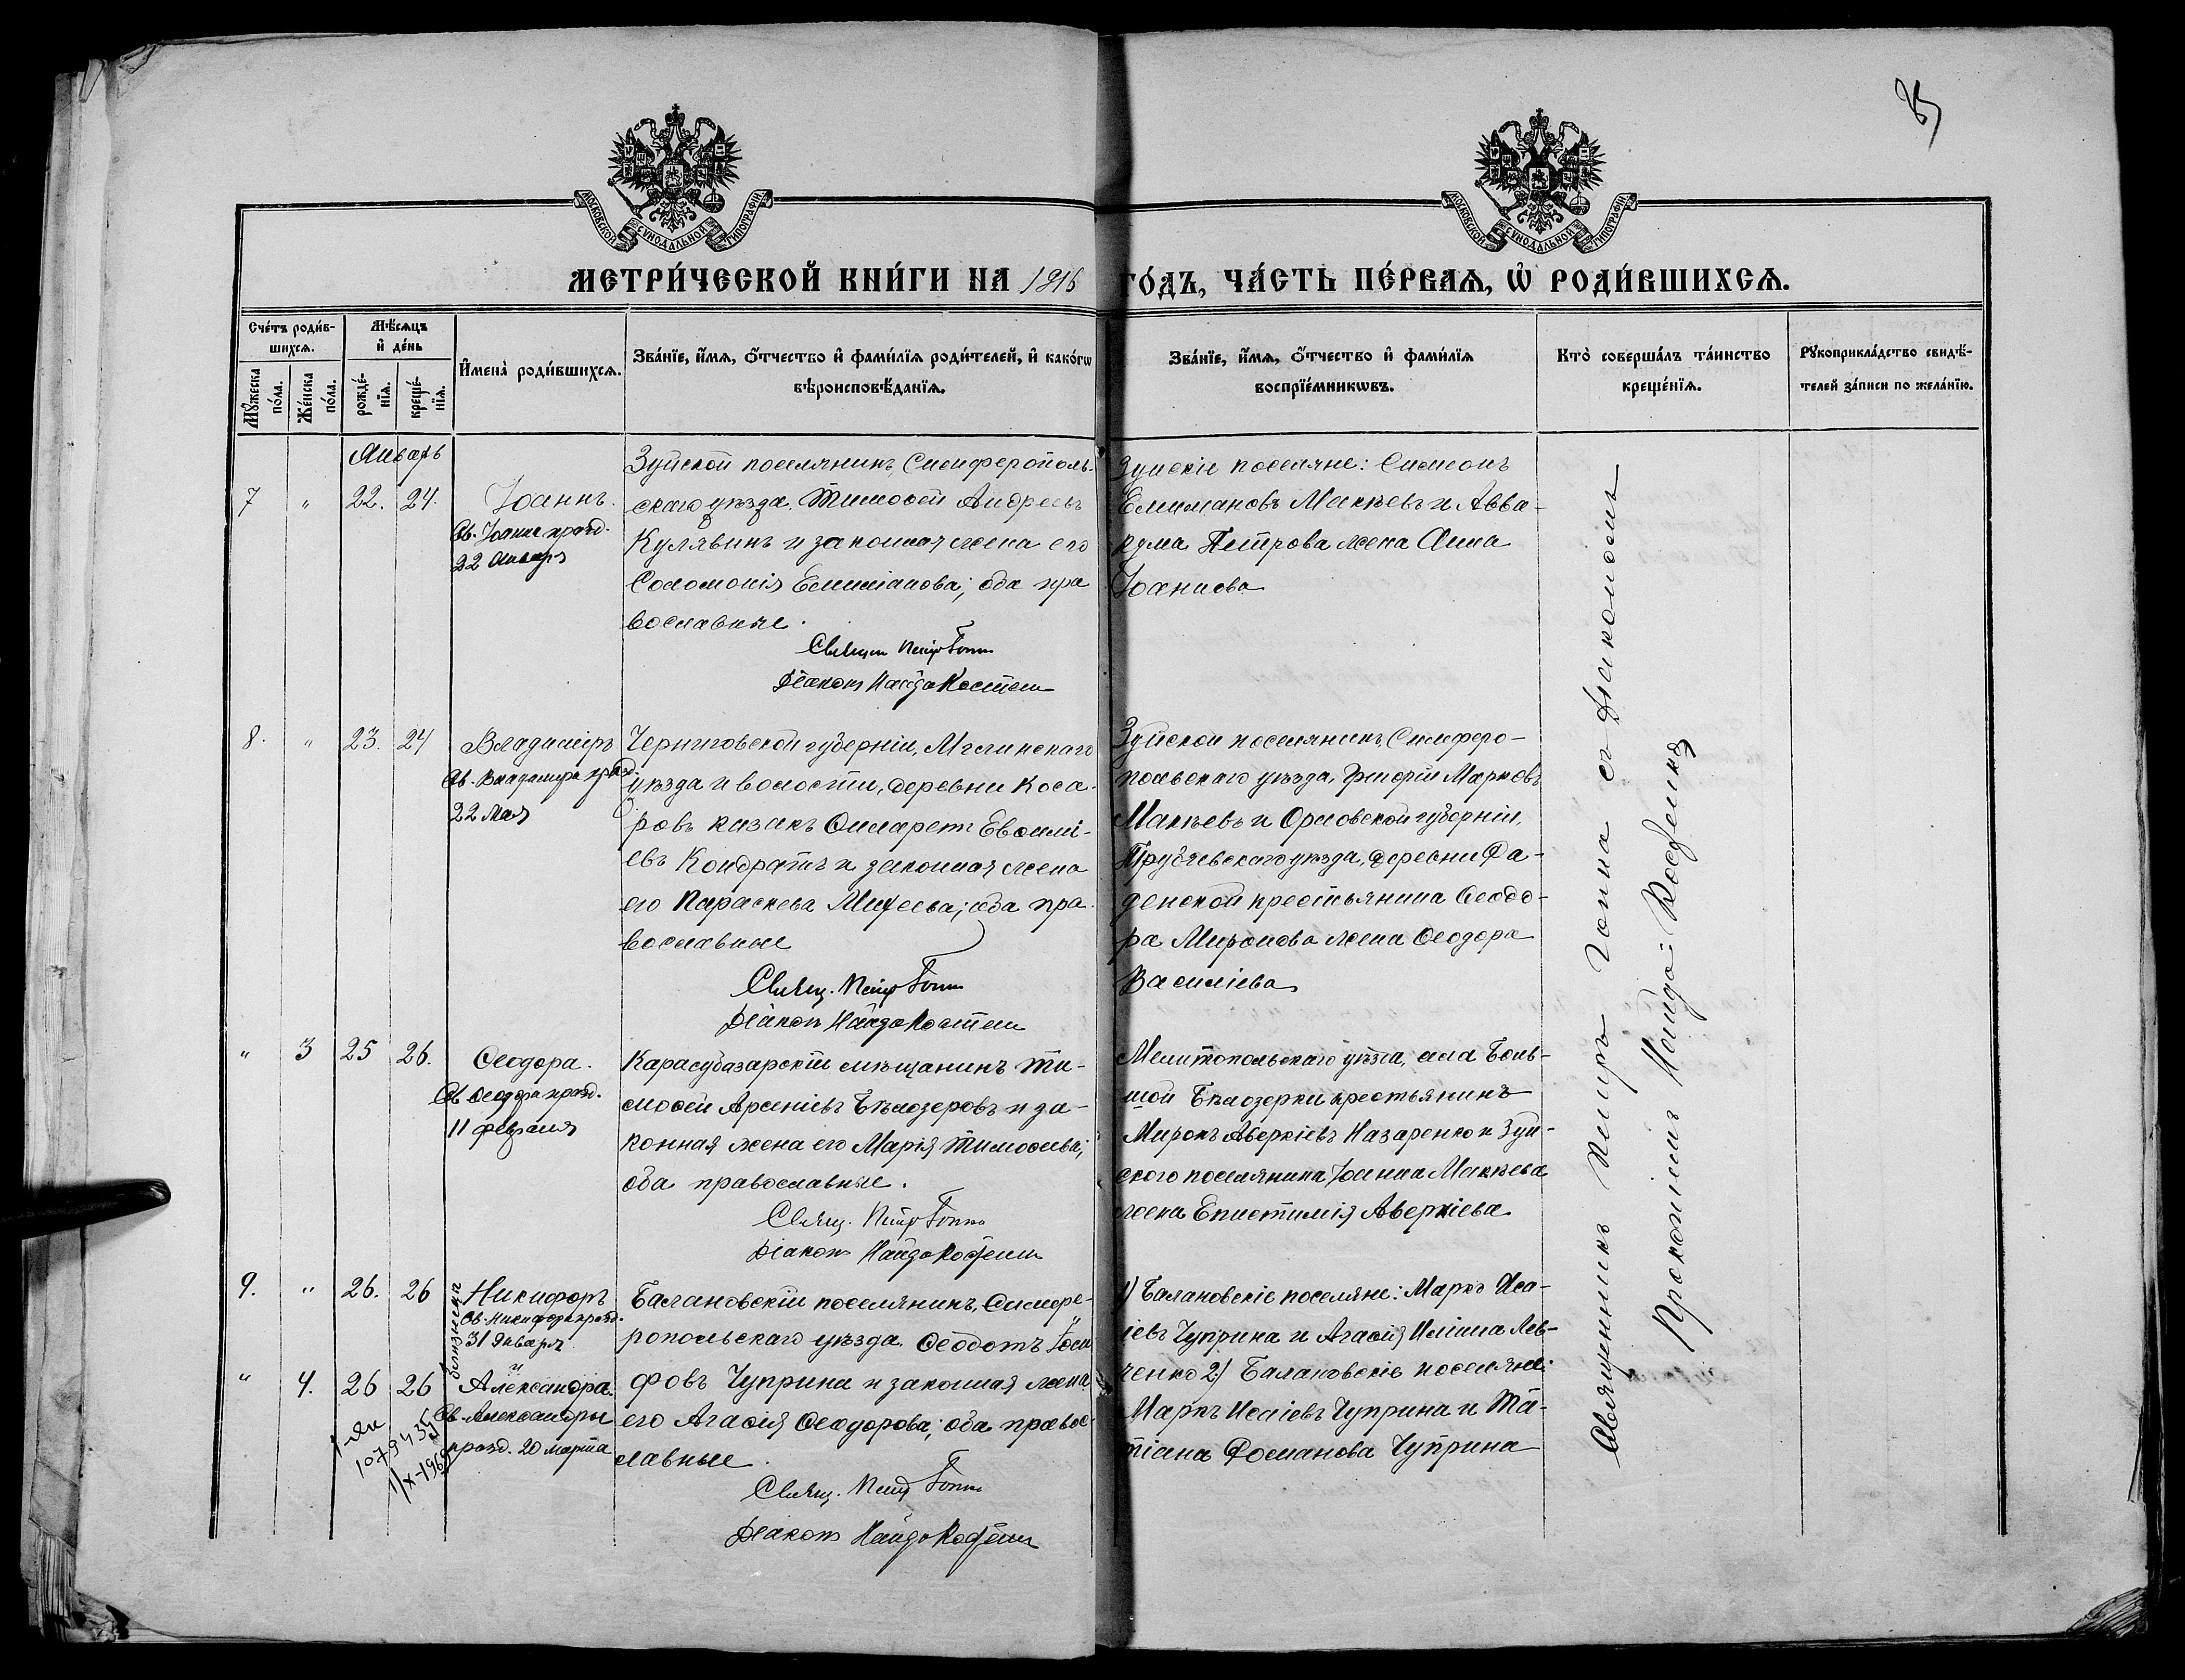 МОСКОВСКОЙ СѴНОДАЛЬНОЙ ТИПОГРАФІИ
МОСКОВСКОЙ СѴНОДАЛЬНОЙ ТИПОГРАФІИ
МЕТРИ́ЧЕСКОЙ КНИ́ГИ НА 1916 ГО́ДЪ, ЧА́СТЬ ПЕ́РВАѦ, Ѡ҆ РОДИ́ВШИХСѦ.
Сче́тъ роди́в-
шихсѧ.
Мꙋ́жеска
по́ла.
Же́нска
по́ла.
Мѣ́сѧцъ
и҆ де́нь
рожде́-
нїѧ.
креще́-
нїѧ.
И҆мена̀ роди́вшихсѧ.
Зва́нїе, и҆́мѧ, ѻ҆́тчество и҆ фами́лїѧ роди́телей, и҆ како́гѡ
вѣроисповѣ́данїѧ.
Зва́нїе, и҆́мѧ, ѻ҆́тчество и҆ фами́лїѧ
воспрїе́мникѡвъ.
Кто̀ соверша́лъ та́инство
креще́нїѧ.
Рꙋкоприкла́дство свидѣ́-
телей за́писи по жела́нїю.
Январь
7 " 22. 24. Іоаннъ.
Св. Іоанна празд.
22 Января
Зуйской поселянинъ, Симферополь-
скаго уѣзда, Тимоѳей Андреевъ
Кулявинъ и законная жена его
Соломонія Емиліанова; оба пра
вославные.
Священ. Петръ Гоппа
Діаконъ Найда Костен
Зуйскіе поселяне: Симеонъ
Емиліановъ Макѣевъ и Авва-
кума Петрова жена Анна
Іоаннова
8. " 23. 24 Владиміръ
Св. Владимира празд.
22 Мая
Черниговской губерніи, Мглинскаго
уѣзда и волости, деревни Коса-
ровъ казакъ Филаретъ Евѳимі-
евъ Кондратъ и законная жена
его Параскева Михеева; оба пра-
вославные
Свящ. Петръ Гоппа
Діаконъ Найда Костен
Зуйской поселянинъ, Симферо-
польскаго уѣзда, Григорій Марковъ
Макѣевъ и Орловской губерніи,
Трубчевскаго уѣзда, деревни Фа-
денской крестьянина Ѳеодо-
ра Миронова жена Ѳеодора
Василіева
" 3 25 26. Ѳеодора.
Св. Ѳеодоры празд.
11 февраля
Карасубазарскій мѣщанинъ Ти-
моѳей Арсеніевъ Бѣлозеровъ и за-
конная жена его Марія Тимоѳеева;
оба православные.
Свящ. Петръ Гоппа
Діаконъ Найда Костен
Мелитопольскаго уѣзда, села Боль-
шой Бѣлозерки крестьянинъ
Миронъ Аверкіевъ Назаренко и Зуй-
скаго поселянина Іоанна Макѣева
жена Епистимія Аверкіева
9. " 26. 26 Никифоръ
Св. Никифора празд.
31 Января
близнецы
и
" 4. 26 26 Александра.
Св. Александры
празд. 20 марта
1079435
1/X-1969
Балановскій поселянинъ, Симфе-
ропольскаго уѣзда, Ѳеодотъ Іоси
фовъ Чуприна и законная жена
его Агаѳія Ѳеодорова; оба право-
славные.
Свящ. Петръ Гоппа
Діаконъ Найда Костен
1) Балановскіе поселяне: Маркъ Иса-
іевъ Чуприна и Агаѳія Иліина Лев-
ченко 2) Балановскіе поселяне:
Маркъ Исаіевъ Чуприна и Та-
тіана Романова Чуприна
Священникъ Петръ Гоппа съ діакономъ
Прокопіемъ Найда-Костенко